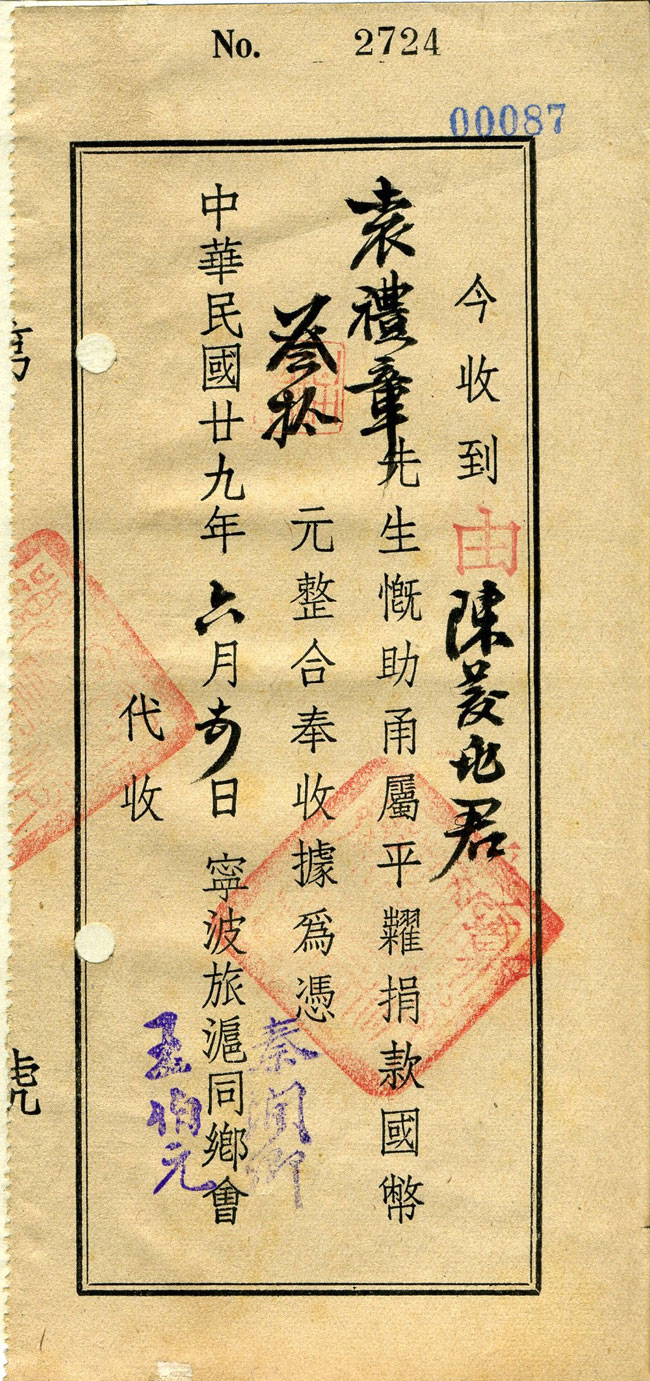 No. 2724
00087
今收到由陳菱兆君
袁禮章先生慨助甬屬平糶捐款國幣
叁拾元整合奉收據爲憑
中華民國廿九年六月日寧波旅滬同鄉會
秦潤卿
代收
王伯元
號